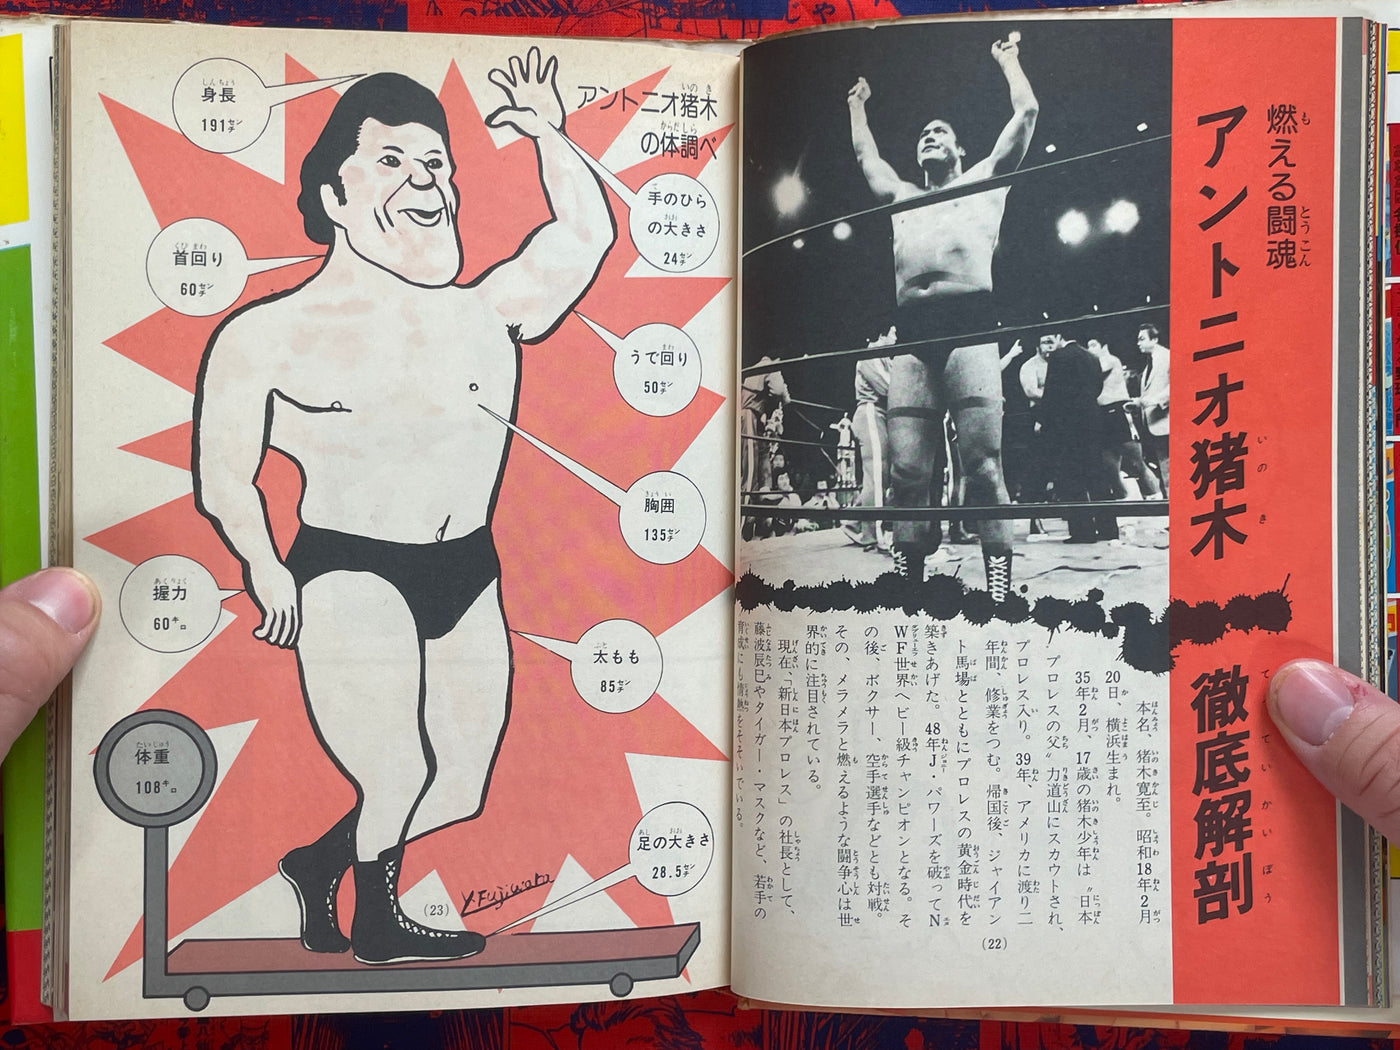 燃える闘魂
アントニオ猪木
徹底解剖
本名、猪木寛至。昭和18年2月
20日、横浜生まれ。
35年2月、17歳の猪木少年は〝日本
プロレスの父〟力道山にスカウトされ、
プロレス入り。39年、アメリカに渡り二
年間、修業をつむ。帰国後、ジャイアン
ト馬場とともにプロレスの黄金時代を
築きあげた。48年J・パワーズを破ってN
WF世界ヘビー級チャンピオンとなる。そ
の後、ボクサー、空手選手などとも対戦。
その、メラメラと燃えるような闘争心は世
界的に注目されている。
現在、「新日本プロレス」の社長として、
藤波辰巳やタイガー・マスクなど、若手の
育成にも情熱をそそいでいる。
(22)
アントニオ猪木
の体調べ
身長
191センチ
手のひら
の大きさ
24センチ
首回り
60センチ
うで回り
50センチ
胸囲
135センチ
握力
60キロ
太もも
85センチ
体重
108キロ
足の大きさ
28.5センチ
Y.Fujiwara
(23)